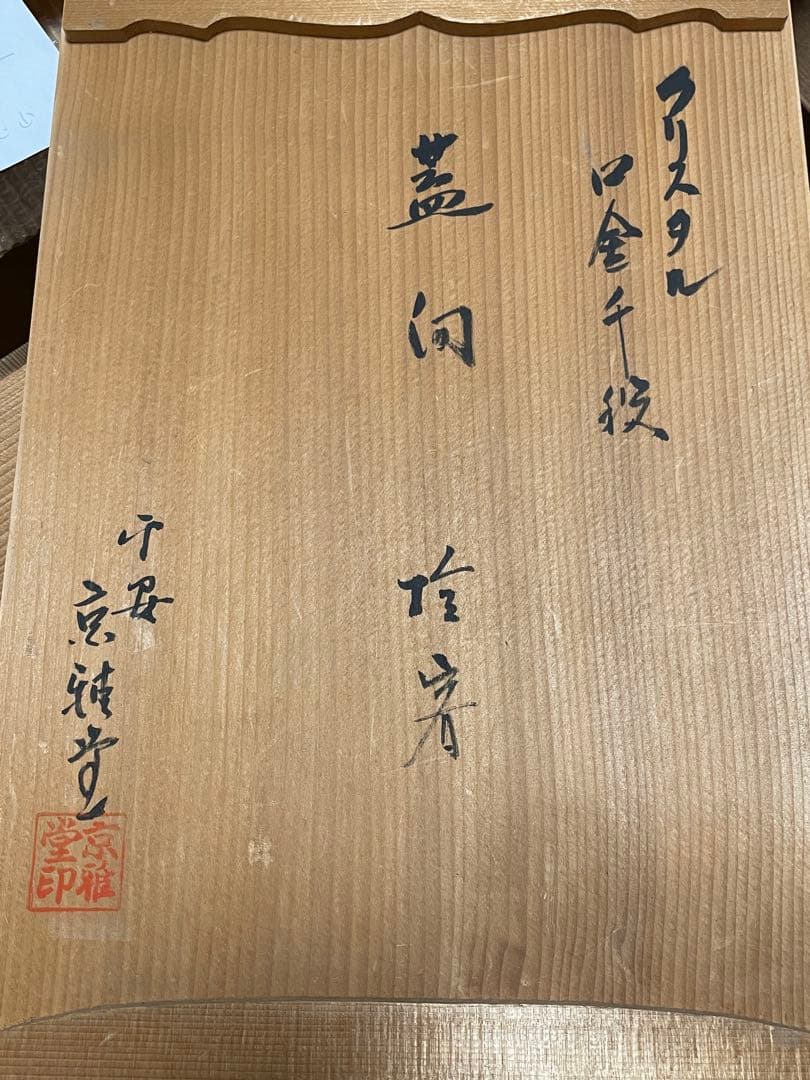 クリスタル
口金千段
蓋向 拾客
平安
京雅堂
京雅
堂印